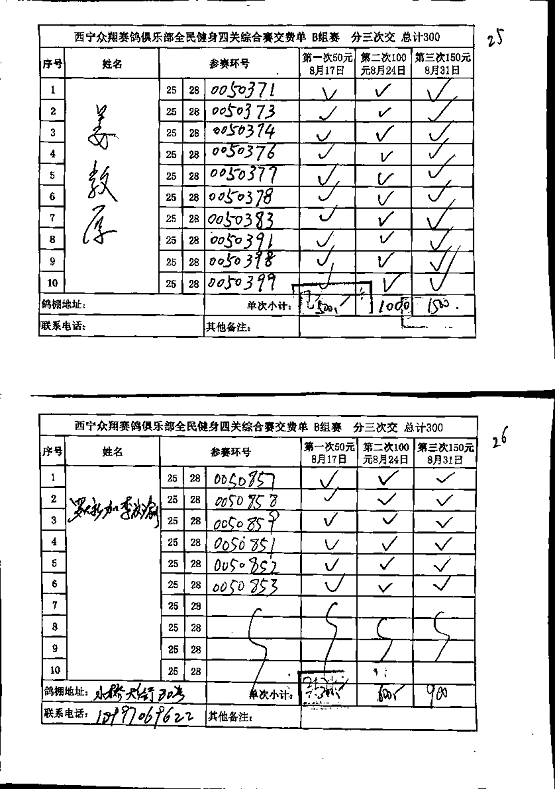 25
西宁众翔赛鸽俱乐部全民健身四关综合赛交费单 B组赛 分三次交 总计300
序号 姓名 参赛环号 第一次50元 8月17日 第二次100元8月24日 第三次150元 8月31日
1 25 28 0050371 ✓ ✓ ✓
2 25 28 0050373 ✓ ✓ ✓
3 25 28 0050374 ✓ ✓ ✓
4 25 28 0050376 ✓ ✓ ✓
5 25 28 0050377 ✓ ✓ ✓
6 25 28 0050378 ✓ ✓ ✓
7 25 28 0050383 ✓ ✓ ✓
8 25 28 0050391 ✓ ✓ ✓
9 25 28 0050398 ✓ ✓ ✓
10 25 28 0050399 ✓ ✓ ✓
鸽棚地址: 单次小计: 500 1000 1500
联系电话: 其他备注:
26
西宁众翔赛鸽俱乐部全民健身四关综合赛交费单 B组赛 分三次交 总计300
序号 姓名 参赛环号 第一次50元 8月17日 第二次100元8月24日 第三次150元 8月31日
1 25 28 0050857 ✓ ✓ ✓
2 25 28 0050858 ✓ ✓ ✓
3 25 28 0050859 ✓ ✓ ✓
4 25 28 0050851 ✓ ✓ ✓
5 25 28 0050852 ✓ ✓ ✓
6 25 28 0050853 ✓ ✓ ✓
7 25 28
8 25 28
9 25 28
10 25 28
鸽棚地址: 单次小计: 900
联系电话: 其他备注: